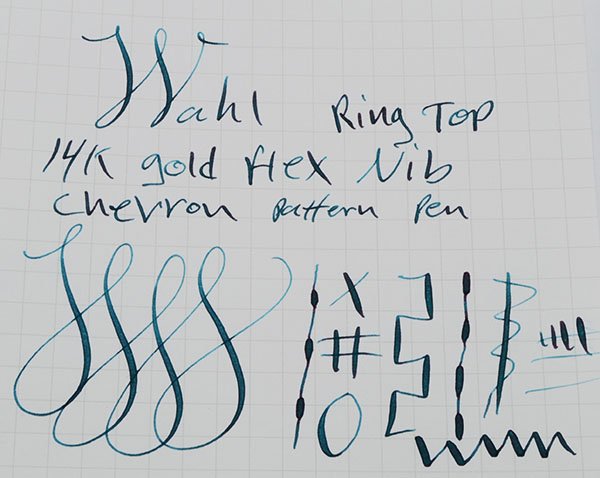 Wahl Ring Top
14K gold flex Nib
Chevron pattern Pen